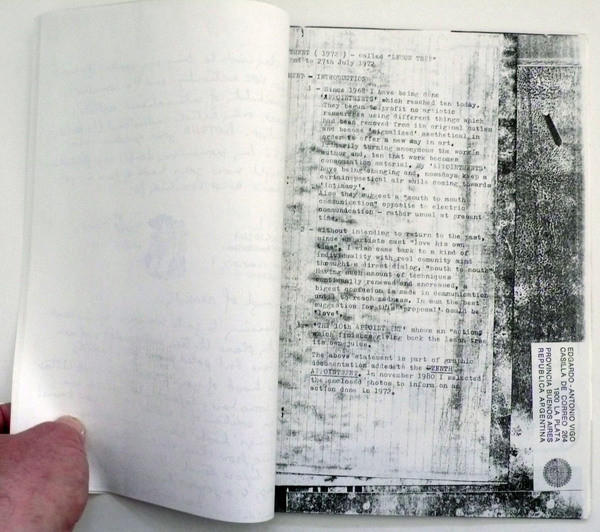 TMENT ( 1972 ) - called "LEMON TREE"
nd to 27th July 1972
MENT - INTRODUCTION
1 - Since 1968 I have being done
'APPOINTMENTS' which reached ten today.
They begun to profit no artistic
resources using different things which
had been removed from its original outism
and become 'signalized' aesthetical in
order to offer a new way in art.
Primarily turning anonymous the work's
author and, ten that work becomes
consumation material. My 'APPOINTMENTS'
have being changing and, nowadays keep a
certain poetical air while coming towards
'intimacy'.
Also they suggest a "mouth to mouth
communication" opposite to electric
communication - rather usual at present
time.
- Without intending to return to the past,
since an artists must "love his own
time", I wish came back to a kind of
individuality with real comunity mind
throught a direct dialog, "mouth to mouth"
Having such amount of techniques
continually renewed and encreased, a
biggest confusion is made in communication
until to reach madness. In sum the best
suggestion for this 'proposal' could be
'love'.
- The 10th APPOINTMENT' shows an "action"
which finishes giving back the lemon tree
its own juice.
The above statement is part of graphic
documentation added to the TENTH
APPOINTMENT. In november 1980 I selected
the enclosed photos to inform on an
action done in 1972.
EDGARDO - ANTONIO VIGO
CASILLA DE CORREO 264
1900 LA PLATA
PROVINCIA BUENOS AIRES
REPUBLICA ARGENTINA